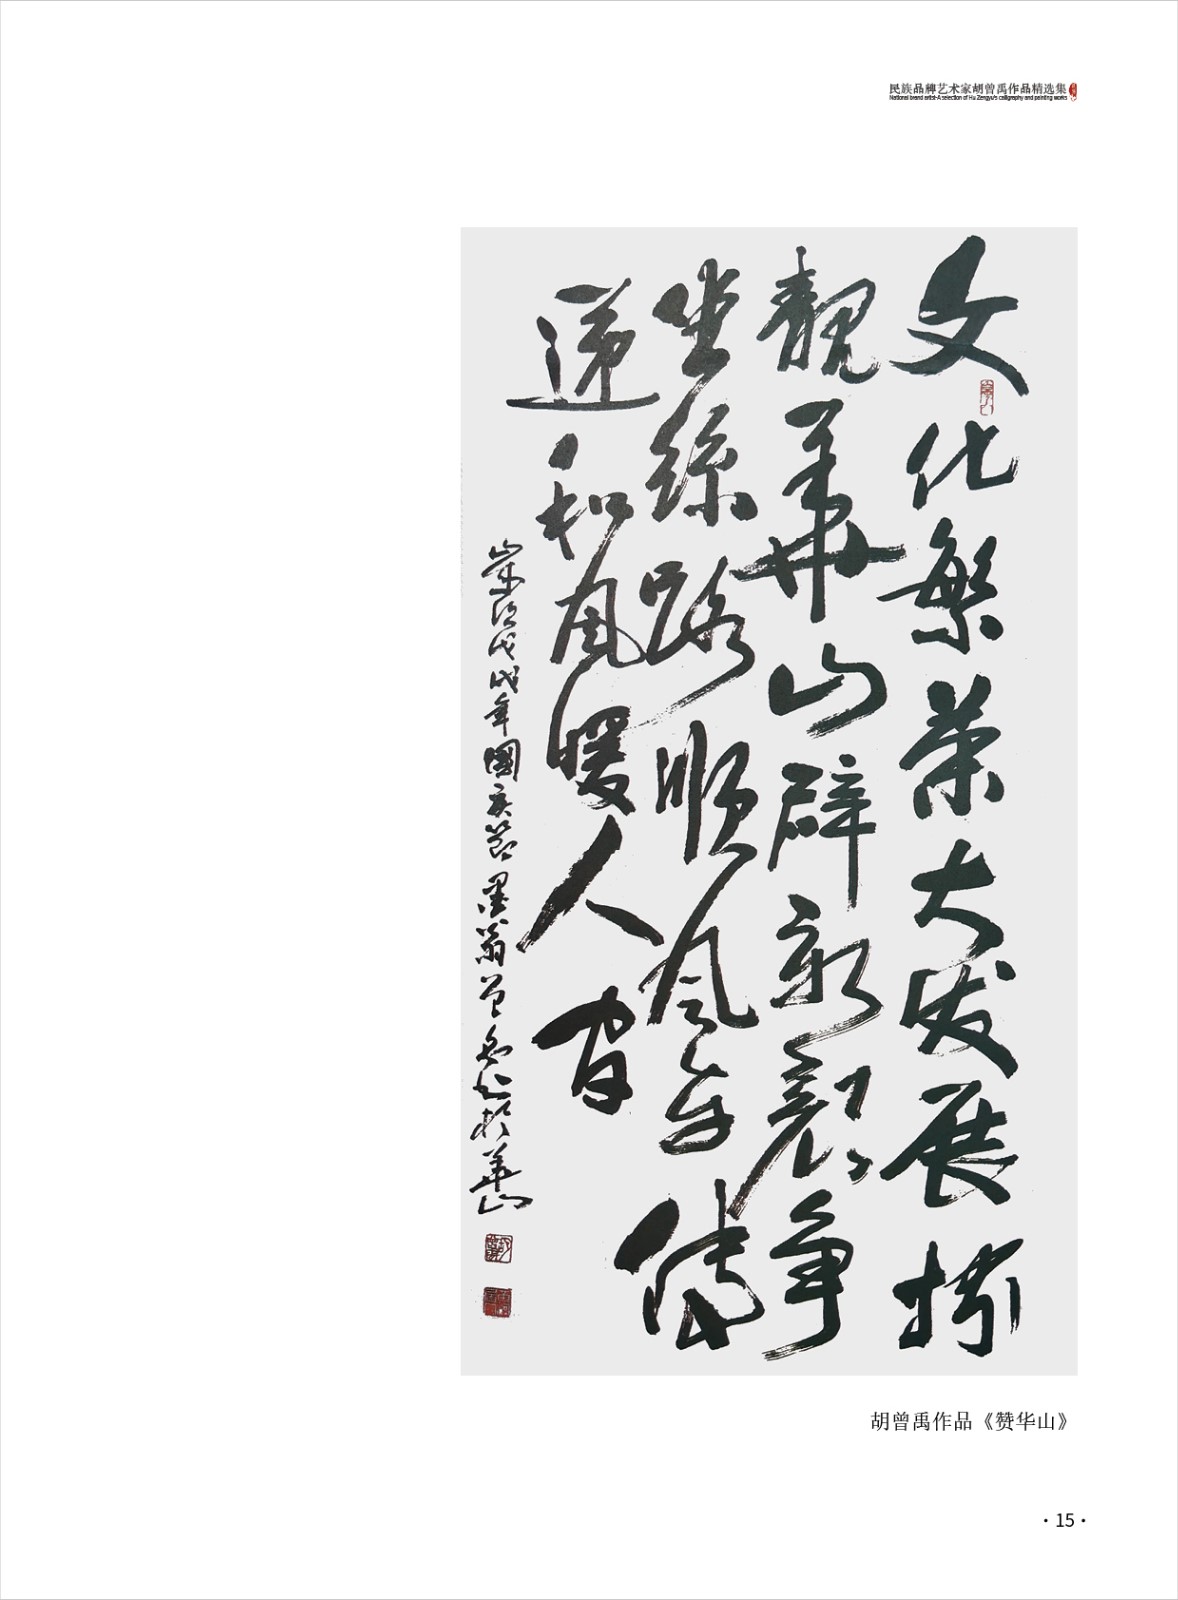 民族品牌艺术家胡曾禹作品精选集
National brand artist-A selection of Hu Zengyu's calligraphy and painting works
文化繁荣大发展扮
靓華山辟新颜争
坐絲路顺风车传
递和风暖人间
歲次戊戌年國庆節墨翁曾禹书於華山
胡曾禹作品《赞华山》
·15·